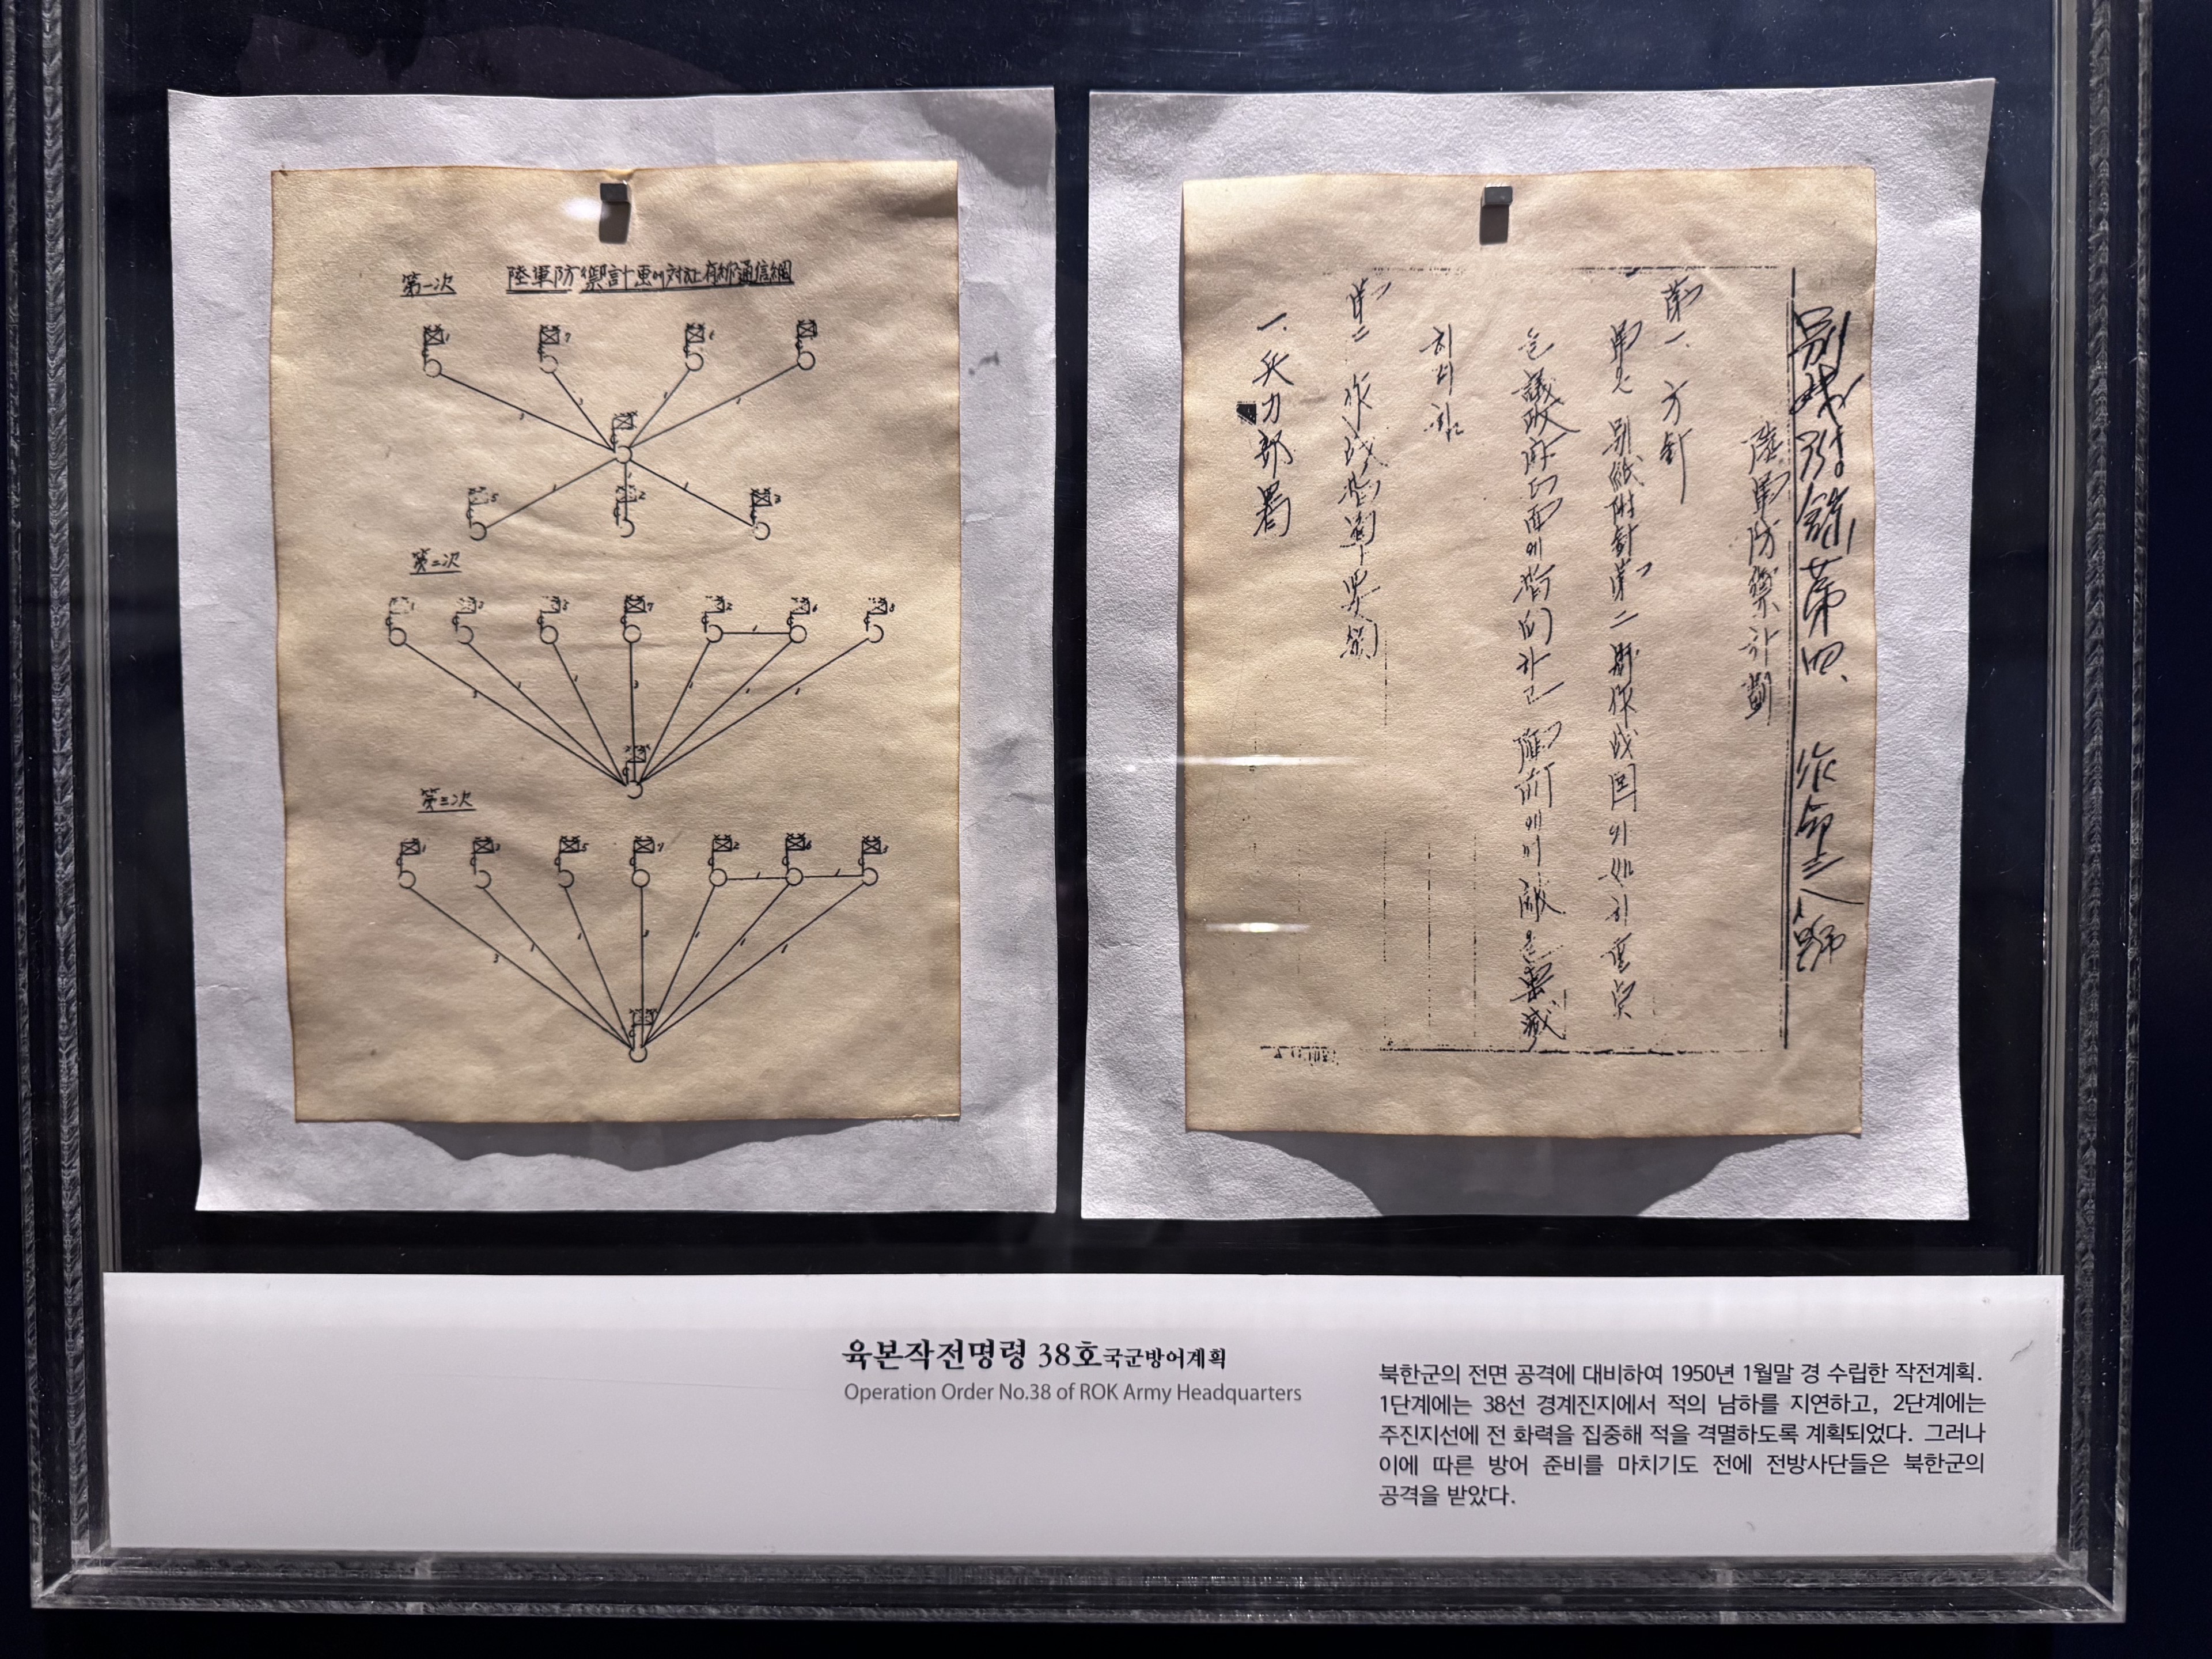 第一次
陸軍防禦計画에対한有線通信網
第二次
第三次
別冊附錄第四 作命三八號
陸軍防禦計劃
第一. 方針
軍은 別紙附針第二 別作戰図의如히 重点
을 議政府正面에指向하고 陣前에서 敵을 擊滅
하려함
第二 作戰指導要領
一. 兵力部署
육본작전명령 38호국군방어계획
Operation Order No.38 of ROK Army Headquarters
북한군의 전면 공격에 대비하여 1950년 1월말 경 수립한 작전계획.
1단계에는 38선 경계진지에서 적의 남하를 지연하고, 2단계에는
주진지선에 전 화력을 집중해 적을 격멸하도록 계획되었다. 그러나
이에 따른 방어 준비를 마치기도 전에 전방사단들은 북한군의
공격을 받았다.